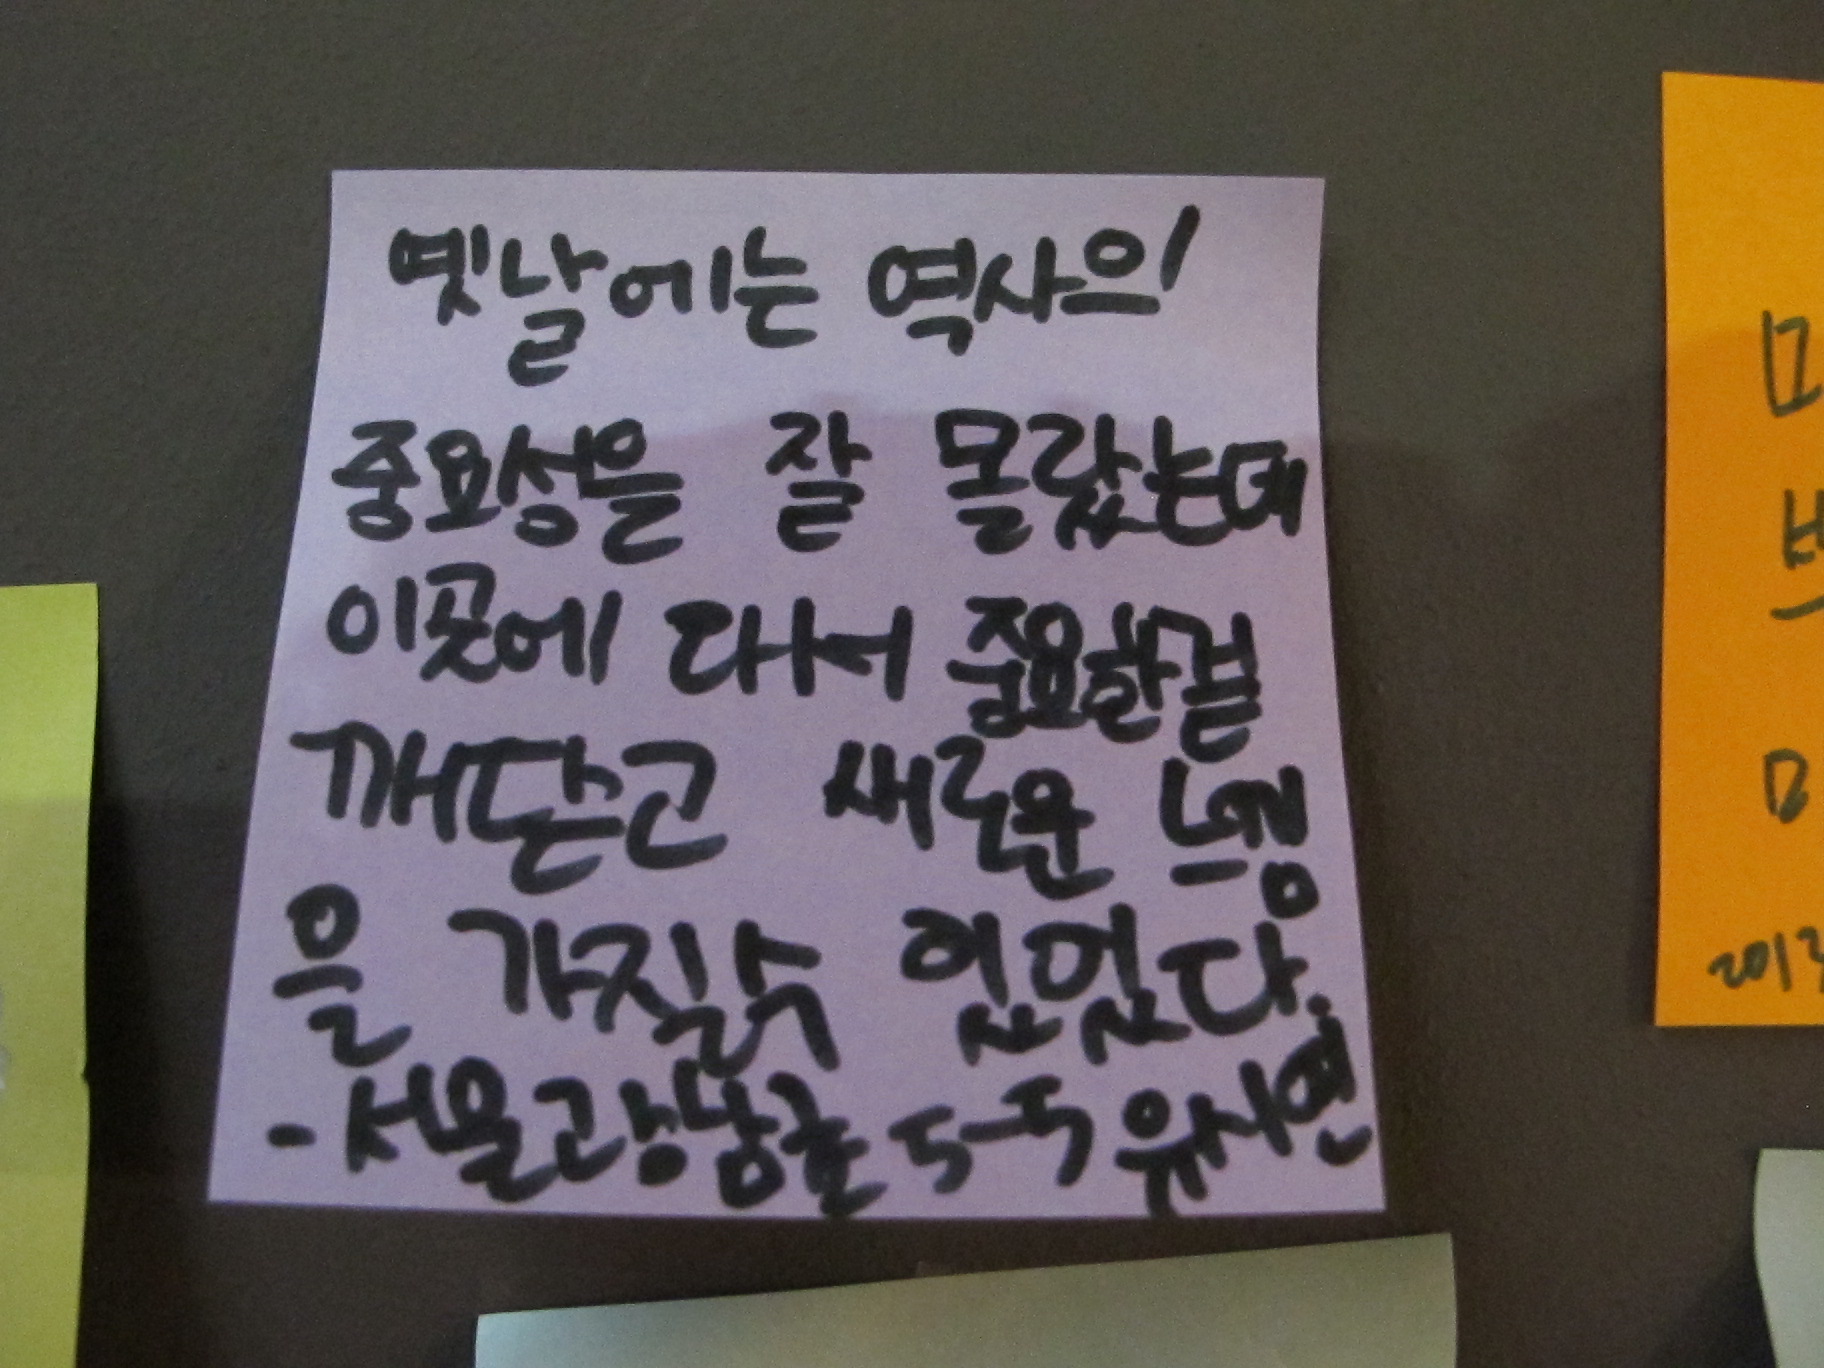 옛날에는 역사의
중요성을 잘 몰랐는데
이곳에 다서 중요한걸
깨닫고 새로운 느낌
을 가질수 있었다.
-서울광남초 5-5 유시연
2013